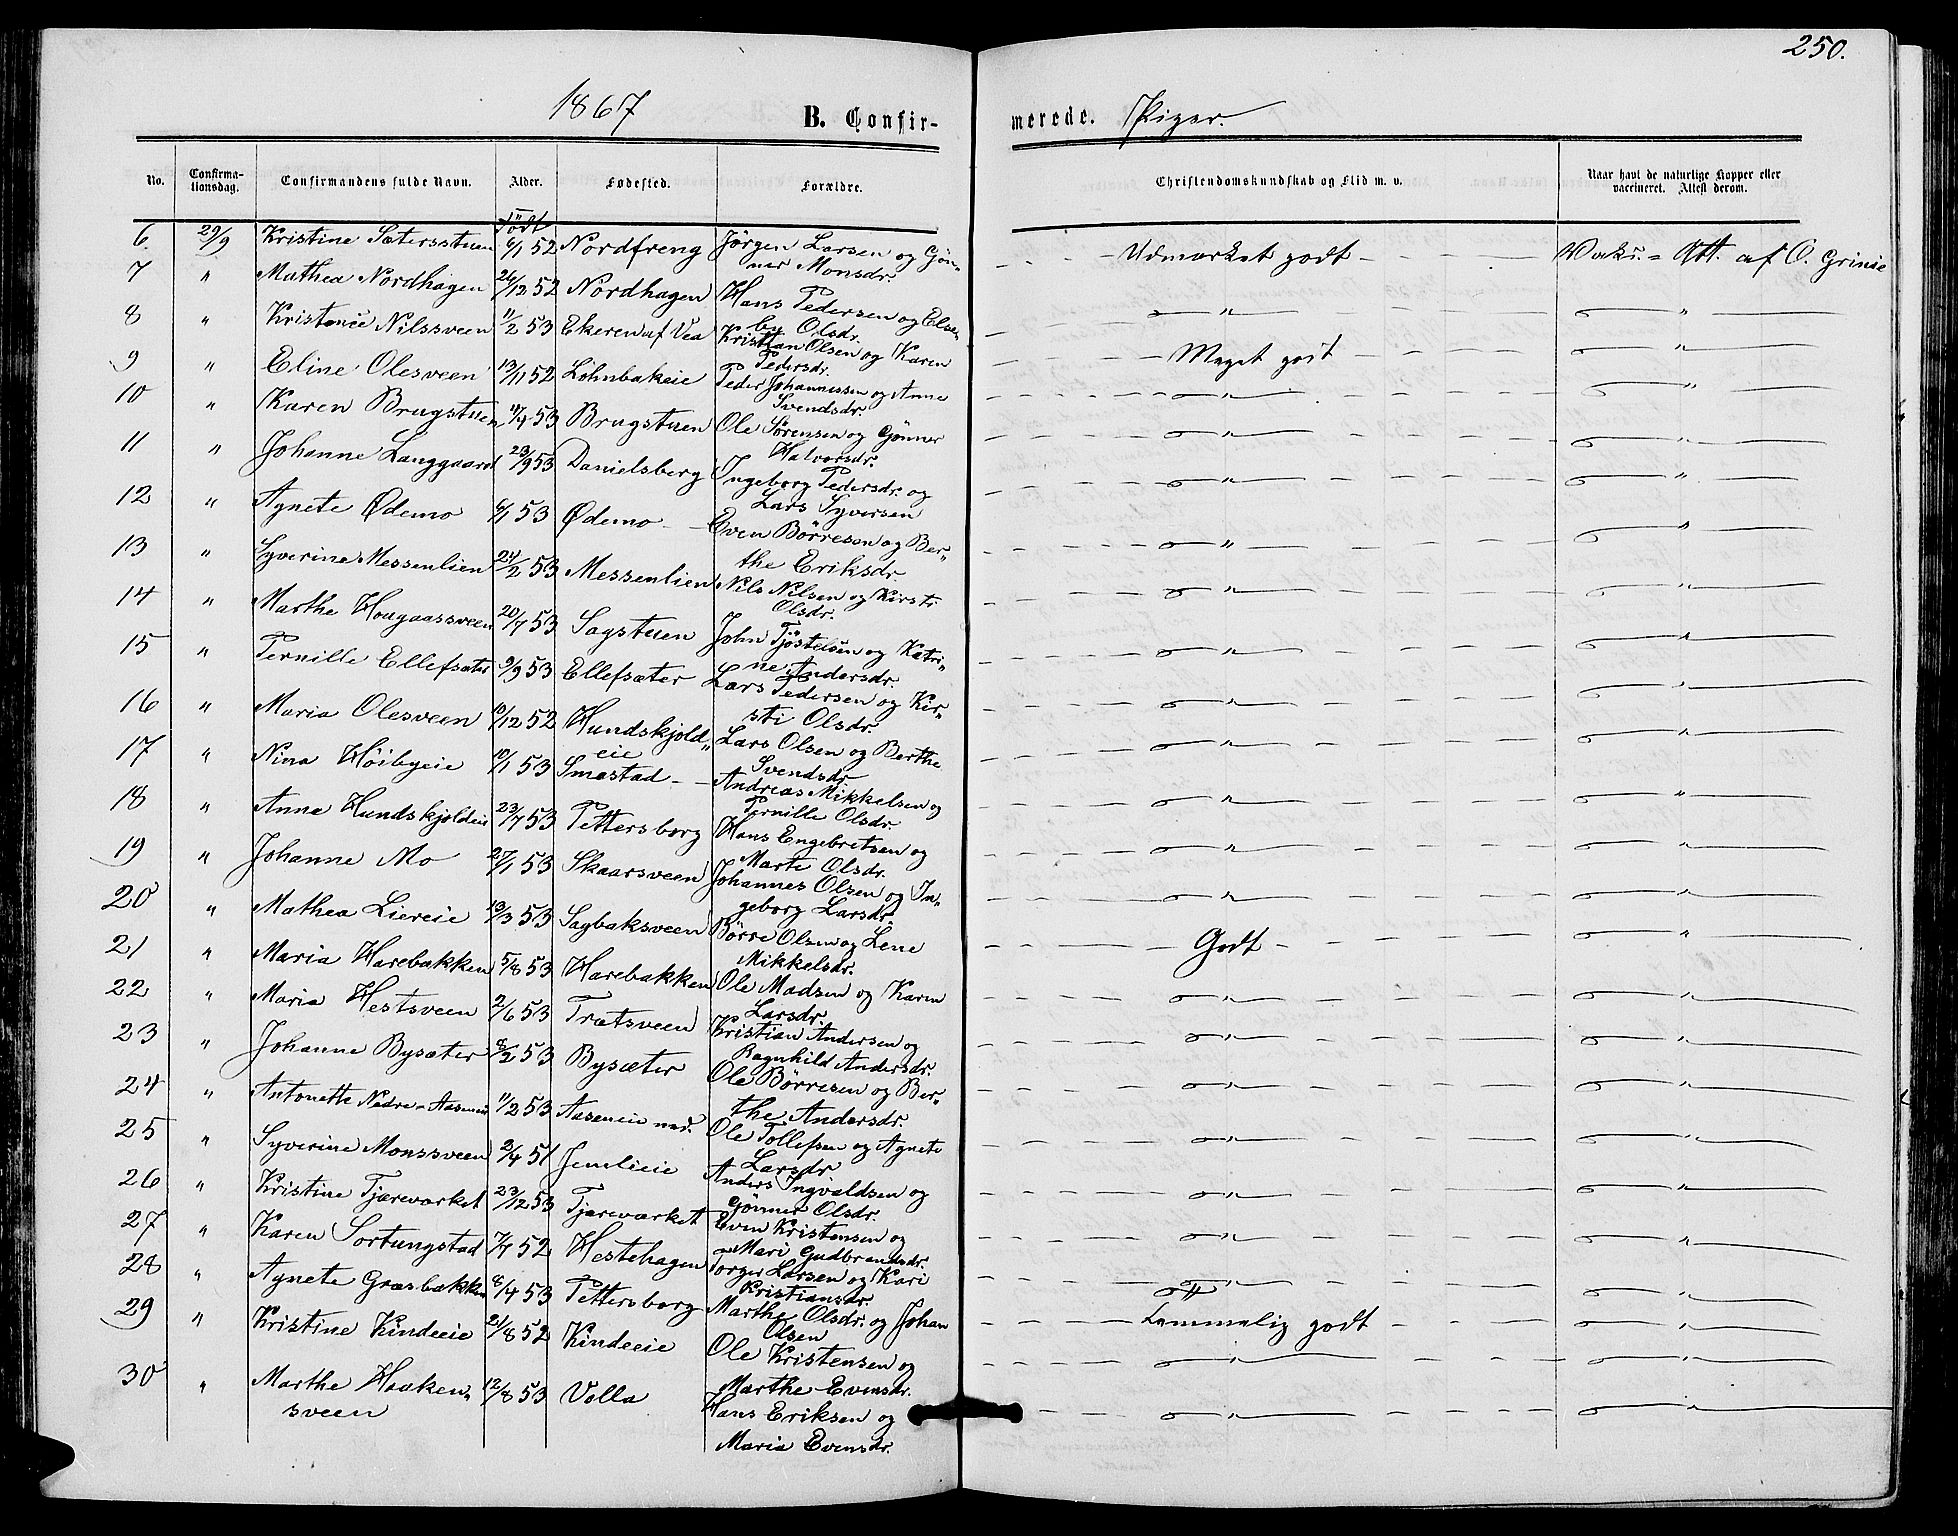 250.
1867 B. Confir-
merede. Piger.
No. Confirma-tionsdag. Confirmandens fulde Navn. Alder. Fødested. Forældre. Christendomskundskab og Flid m. v. Naar havt de naturlige Kopper eller vaccineret. Attest derom.
Født
6. 29/9 Kristine Sætersstuen 6/1 52 Nordfreng Jörgen Larsen og Gön„ner Monsdr. Udmærket godt Vaks. = Att. af O. Grinie
7 „ Mathea Nordhagen 26/12 52 Nordhagen Hans Pedersen og Else„by Olsdr. „ „
8 „ Kristense Nilssveen 11/2 53 Ekeren af Vea Kristian Olsen og Karen Pedersdr. Meget godt „
9 „ Eline Olesveen 13/11 52 Lohnbakeie Peder Johannessen og Anne Svendsdr. „ „
10 „ Karen Brugstuen 4/4 53 Brugstuen Ole Sörensen og Gönner Halvorsdr. „ „
11 „ Johanne Langgaard 23/9 53 Danielsberg Ingeborg Pedersdr. og Lars Syversen „ „
12 „ Agnete Ødemo 6/1 53 Ødemo Even Börresen og Ber„the Eriksdr „ „
13 „ Syverine Messenlien 24/2 53 Messenlien Nils Nilsen og Kirsti Olsdr. „ „
14 „ Marthe Hougaassveen 20/7 53 Sagstuen John Tjöstelsen og Katri„ne Andersdr. „ „
15 „ Pernille Ellefsæter 9/9 53 Ellefsæter Lars Pedersen og Kir„sti Olsdr. „ „
16 „ Maria Olesveen 10/12 52 Hundskjold„eie Lars Olsen og Berthe Svendsdr „ „
17 „ Nina Höibyeie 10/1 53 Smestad Andreas Mikkelsen og Pernille Olsdr. „ „
18 „ Anne Hundskjoldeie 23/7 53 Pettersborg Hans Engebretsen og Marte Olsdr. „ „
19 „ Johanne Mo 27/1 53 Skaarsveen Johannes Olsen og In„geborg Larsdr. „ „
20 „ Mathea Liereie 13/3 53 Sagbaksveen Börre Olsen og Lene Mikkelsdr. „ „
21 „ Maria Harebakken 5/8 53 Harebakken Ole Madsen og Karen Larsdr. Godt „
22 „ Maria Hestsveen 2/6 53 Trætsveen Kristian Andersen og Ragnhild Andersdr. „ „
23 „ Johanne Bysæter 8/2 53 Bysæter Ole Börresen og Ber„the Andersdr. „ „
24 „ Antonette Nedre-Aaseneie 11/2 53 Aaseneie ned. Ole Tollefsen og Agnete Larsdr „ „
25 „ Syverine Monssveen 2/4 51 Jemlieie Anders Ingvaldsen og Gönner Olsdr. „ „
26 „ Kristine Tjæreværket 23/12 53 Tjæreværket Even Kristensen og Mari Gudbrandsdr. „ „
27 „ Karen Sortungstad 7/7 52 Hestehagen Torger Larsen og Kari Kristiansdr. „ „
28 „ Agnete Græsbakken 8/4 53 Pettersborg Marthe Olsdr. og Johan Olsen „ „
29 „ Kristine Kindeeie 21/8 52 Kindeeie Ole Kristensen og Marthe Evensdr. Temmelig godt „
30 „ Marthe Haaken„sveen 12/8 53 Volla Hans Eriksen og Maria Evensdr. „ „